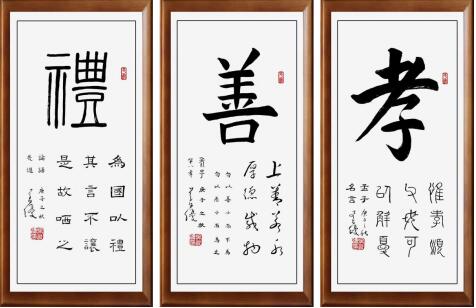 禮
為國以禮
其言不讓
是故哂之
論語 庚子之秋
先進
善
上善若水
厚德載物
老子 庚子之秋
孝
惟孝順
父母可
以解憂
孟子 庚子之秋
名言